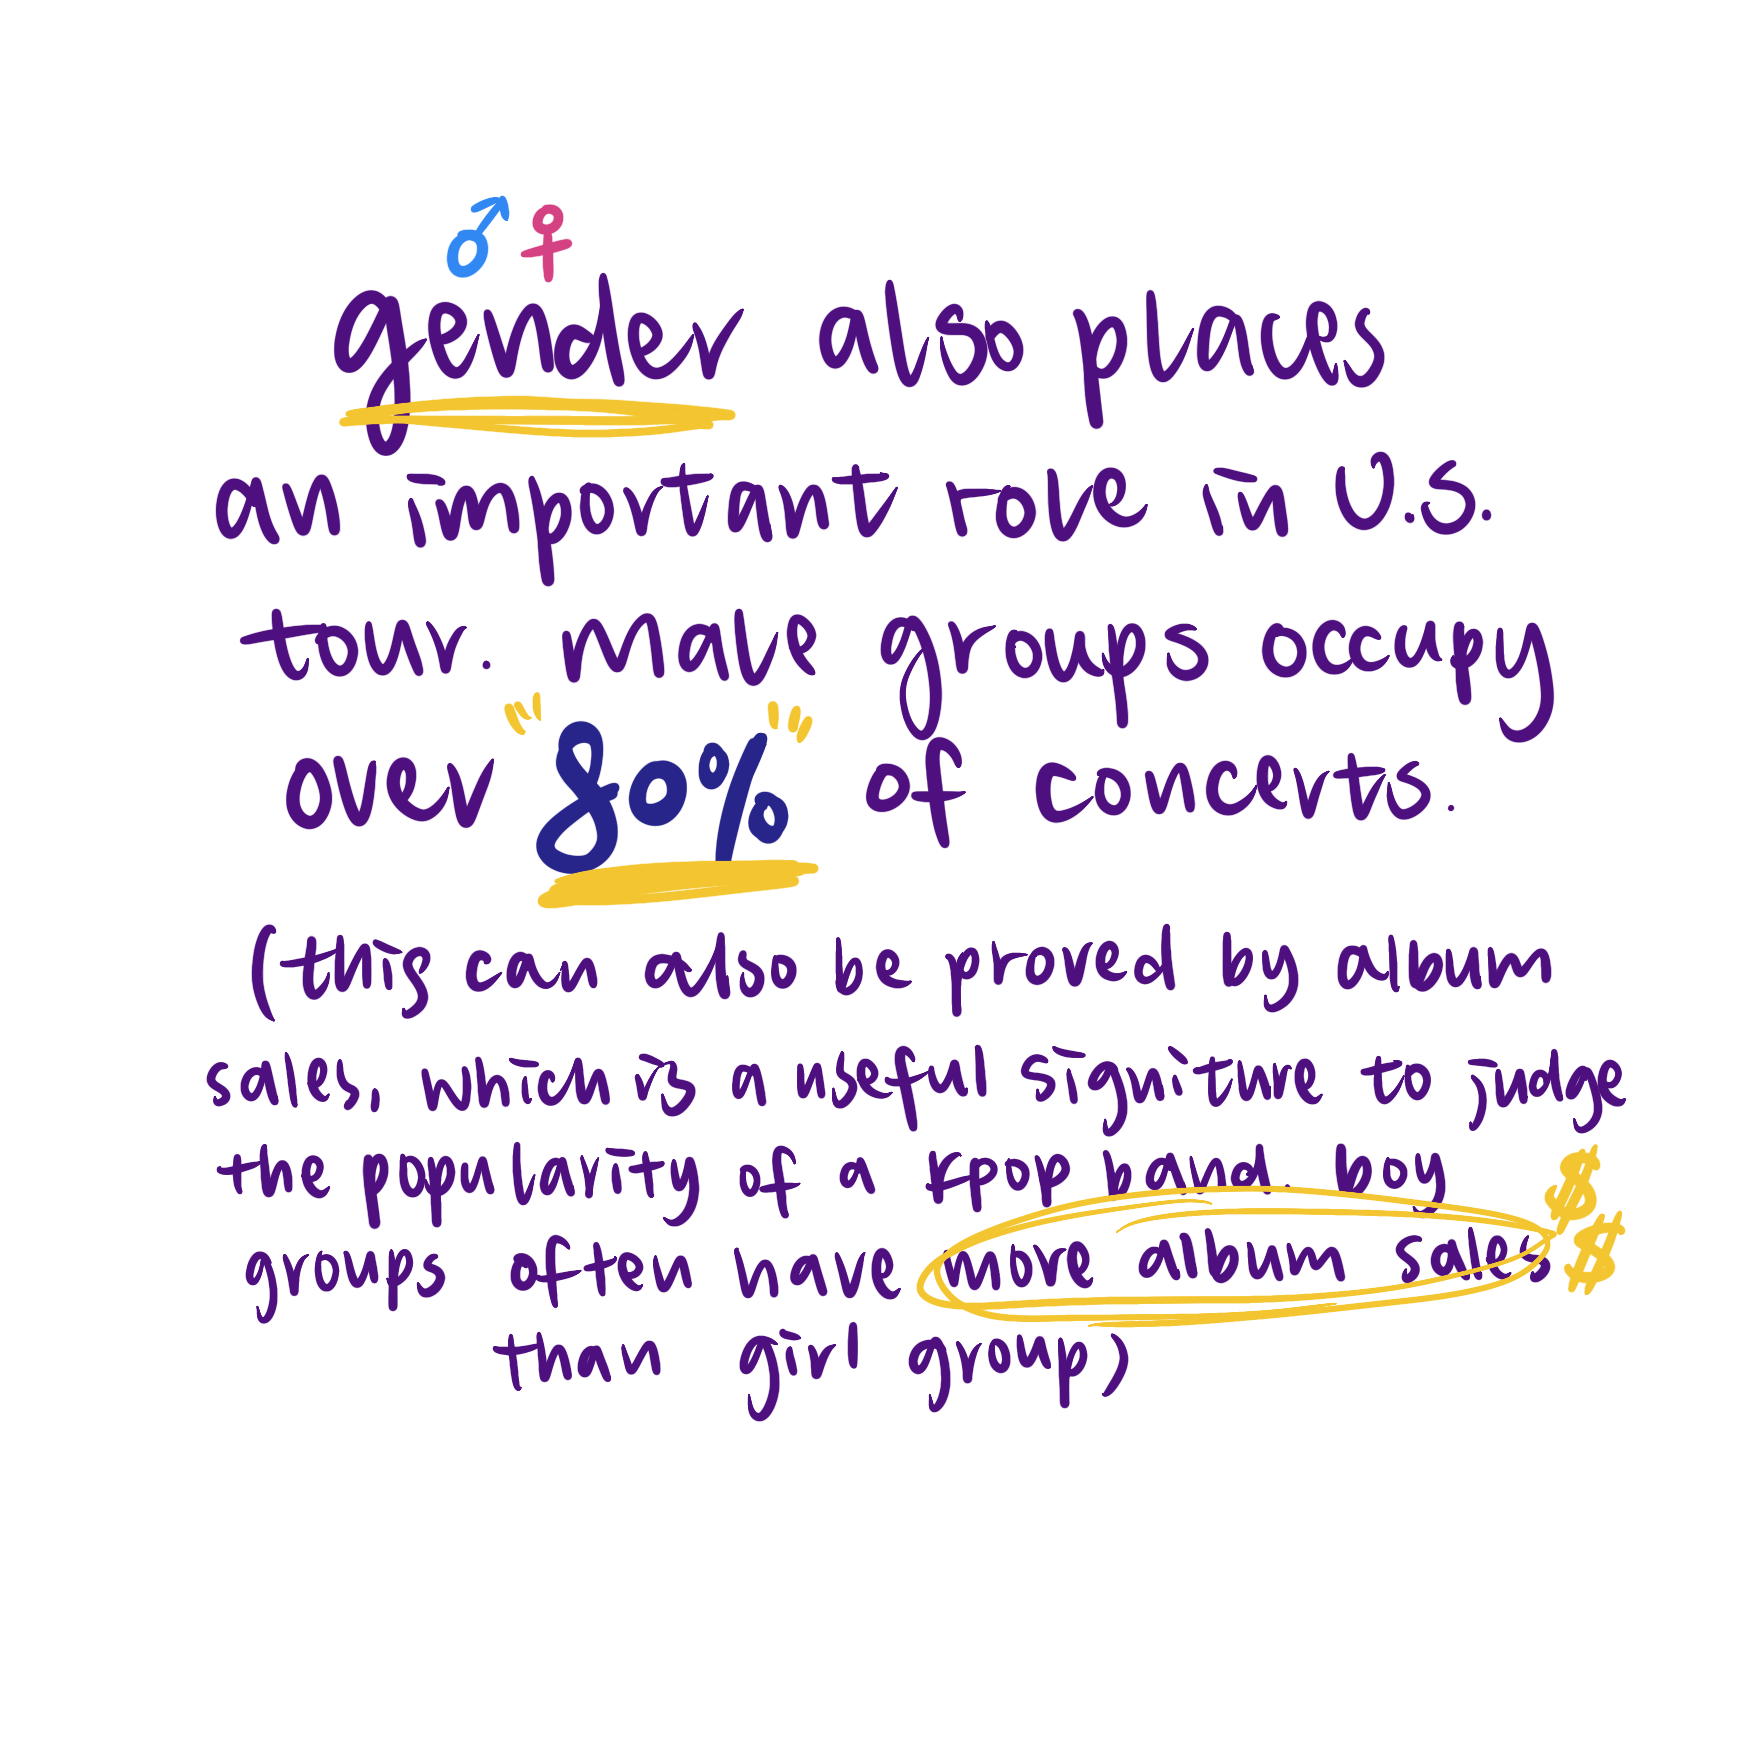 gender also places
an important role in U.S.
tour. Male groups occupy
over 80% of concerts.
(this can also be proved by album
sales, which is a useful signiture to judge
the popularity of a kpop band. boy
groups often have more album sales
than girl group)
$
$